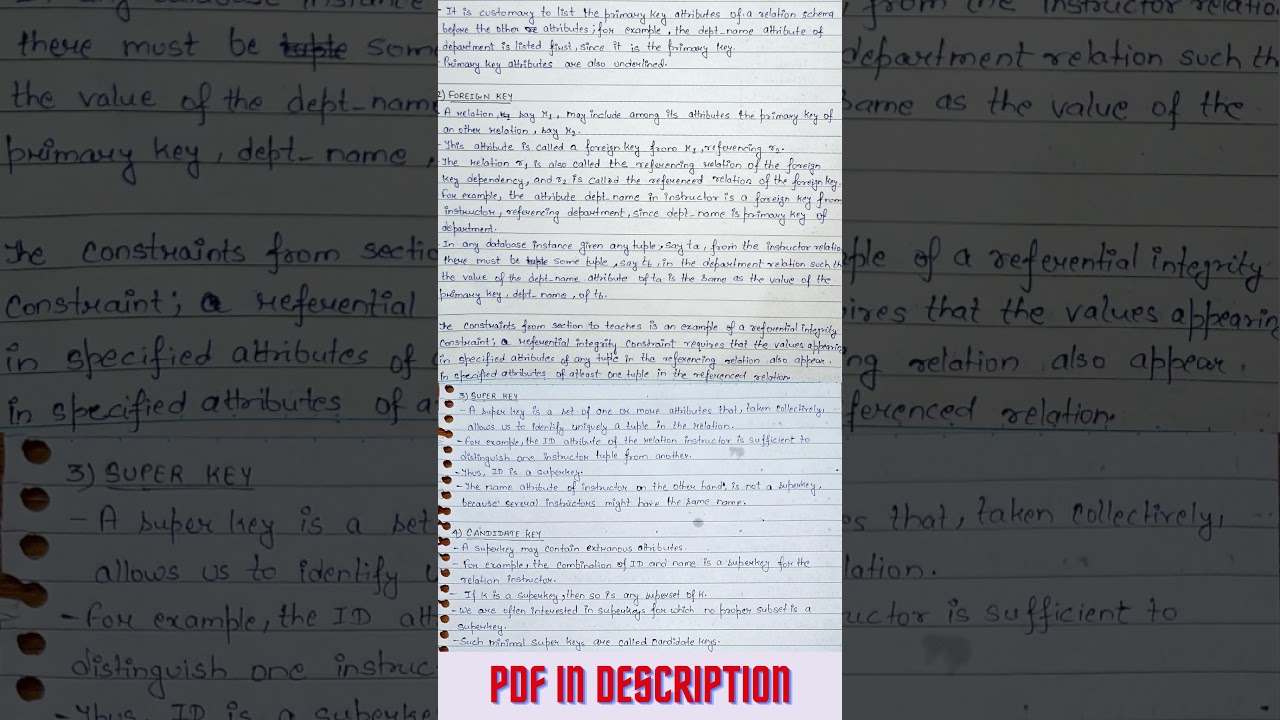 - It is customary to list the primary key attributes of a relation schema
before the other attributes; for example, the dept-name attribute of
department is listed first, since it is the primary key.
- Primary key attributes are also underlined.
2) FOREIGN KEY
- A relation, say r1, may include among its attributes the primary key of
an other relation, say r2.
- This attribute is called a foreign key from r1, referencing r2.
- The relation r1 is also called the referencing relation of the foreign
key dependency, and r2 is called the referenced relation of the foreign key.
for example, the attribute dept-name in instructor is a foreign key from
instructor, referencing department, since dept-name is primary key of
department.
- In any database instance given any tuple, say ta, from the instructor relatio
there must be tuple some tuple, say tb, in the department relation such th
the value of the dept-name attribute of ta is the same as the value of the
primary key, dept-name, of tb.
The constraints from section to teaches is an example of a referential integrity
constraint; a referential integrity constraint requires that the values appearing
in specified attributes of any tuple in the referencing relation also appear.
in specified attributes of atleast one tuple in the referenced relation
3) SUPER KEY
- A super key is a set of one or more attributes that, taken collectively,
allows us to identify uniquely a tuple in the relation.
- for example, the ID attribute of the relation instructor is sufficient to
distinguish one instructor tuple from another.
- Thus, ID is a superkey.
- The name attribute of instructor on the other hand, is not a superkey,
because several instructors might have the same name.
4) CANDIDATE KEY
- A superkey may contain extranous attributes.
- for example, the combination of ID and name is a superkey for the
relation instructor.
- If K is a superkey, then so is any superset of K.
- We are often interested in superkeys for which no proper subset is a
superkey.
- Such minimal super keys are called candidate keys.
PDF IN DESCRIPTION